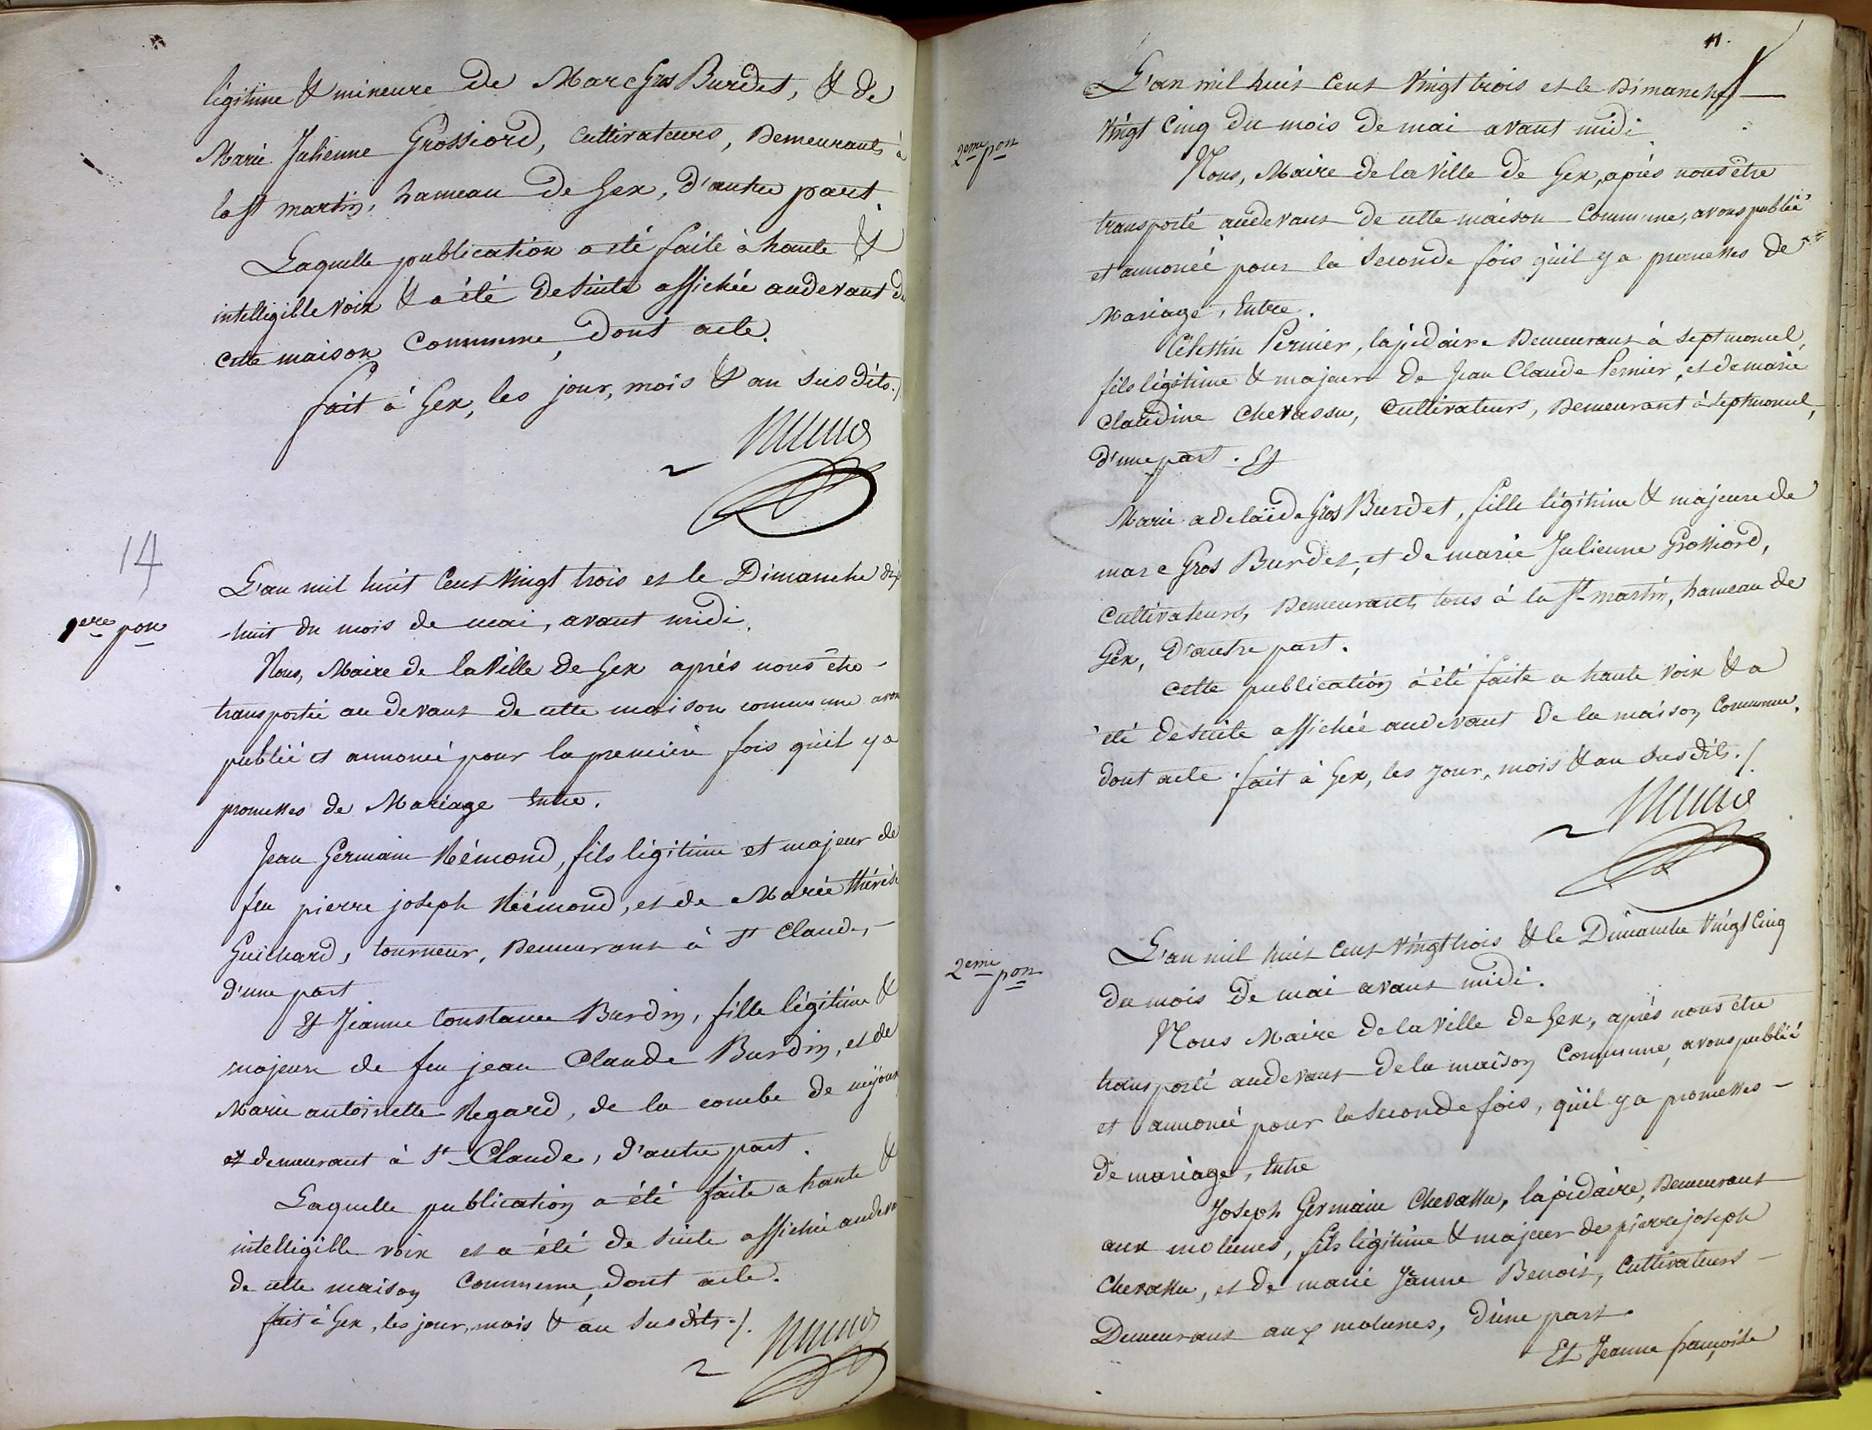 légitime & mineure de Marc Gros Burdet, & de
Marie Julienne Grossiord, cultivateurs, Demeurants à
la St martin, hameau de Gex, d'autre part.
Laquelle publication a été faite à haute &
intelligible voix & a été de suite affichée audevant de
cette maison commune, dont acte.
fait à Gex, les jour, mois & an susdits./.
14
1ere pon
L'an mil huit cent vingt trois et le Dimanche dix
-huit du mois de mai, avant midi.
Nous, Maire de la Ville de Gex après nous être -
transportée au devant de cette maison commune avons
publié et annoncé pour la première fois qu'il y a
promesses de Mariage Entre.
Jean Germain Rémond, fils légitime et majeur de
feu pierre joseph Rémond, et de Marie thérèse
Guichard, tourneur, Demeurant à St Claude, -
d'une part
Et Jeanne Constance Burdin, fille légitime &
majeure de feu jean Claude Burdin, et de
Marie antoinette Regard, de la combe de mijoux
et demeurant à St Claude, d'autre part.
Laquelle publication a été faite a haute &
intelligible voix et a été de suite affichée audevant
de cette maison commune, dont acte.
fait à Gex, les jour, mois & an susdits ./.
11.
2eme pon
L'an mil huit cent vingt trois et le Dimanche
vingt cinq du mois de mai avant midi
Nous, Maire de la Ville de Gex, après nous être
transporté audevant de cette maison commune, avons publié
et annoncé pour la seconde fois qu'il y a promesses de
Mariage, Entre.
Célestin Pernier, lapidaire Demeurant à Septmoncel,
fils légitime & majeur de Jean Claude Pernier, et de marie
Claudine Chevassu, cultivateurs, Demeurant à Septmoncel,
d'une part. Et
Marie adelaïde Gros Burdet, fille légitime & majeure de
marc Gros Burdet, et de marie Julienne Grossiord,
cultivateurs, Demeurants tous à la St martin, hameau de
Gex, D'autre part.
Cette publication à été faite a haute voix & a
été de suite affichée audevant de la maison commune,
dont acte. fait à Gex, les jour, mois & an susdits./.
2eme pon
L'an mil huit cent vingt trois & le Dimanche vingt cinq
du mois de mai avant midi.
Nous Maire de la Ville de Gex, après nous être
transporté audevant de la maison commune, avons publié
et annoncé pour la seconde fois, qu'il y a promesses -
de mariage, Entre
Joseph Germain Chevassu, lapidaire, Demeurant
aux molunes, fils légitime & majeur de pierre joseph
Chevassu, et de marie Jeanne Benoit, Cultivateurs -
Demeurant aux molunes, d'une part.
Et Jeanne françoise